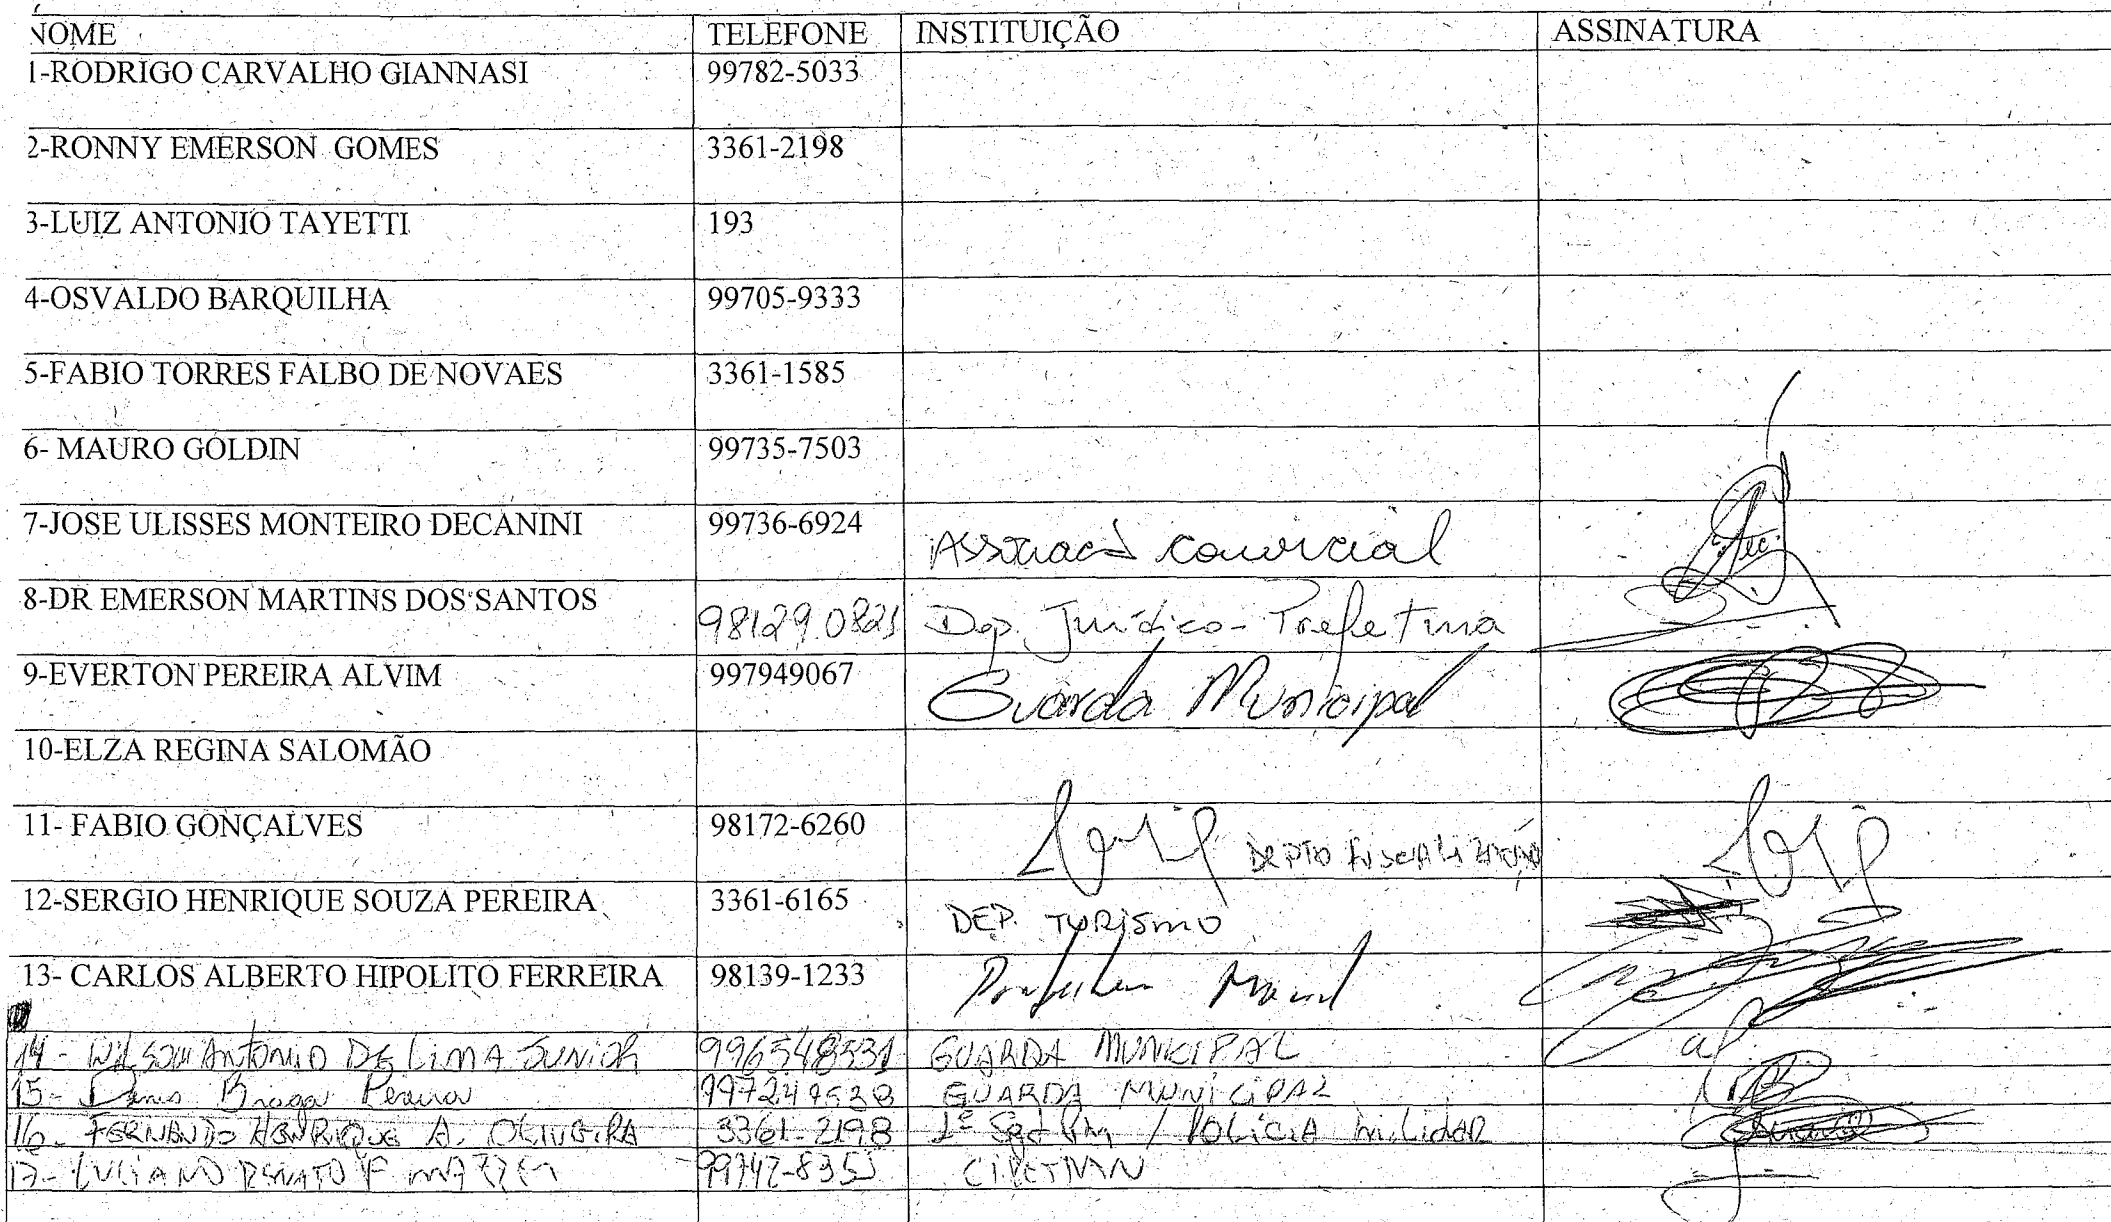 NOME TELEFONE INSTITUIÇÃO ASSINATURA
1-RODRIGO CARVALHO GIANNASI 99782-5033
2-RONNY EMERSON GOMES 3361-2198
3-LUIZ ANTONIO TAYETTI 193
4-OSVALDO BARQUILHA 99705-9333
5-FABIO TORRES FALBO DE NOVAES 3361-1585
6- MAURO GOLDIN 99735-7503
7-JOSE ULISSES MONTEIRO DECANINI 99736-6924 comercial
8-DR EMERSON MARTINS DOS SANTOS 98129.0821 Dep. Jurídico - Prefeitura
9-EVERTON PEREIRA ALVIM 997949067 Guarda Municipal
10-ELZA REGINA SALOMÃO
11- FABIO GONÇALVES 98172-6260 DEPTO FISCALIZAÇÃO
12-SERGIO HENRIQUE SOUZA PEREIRA 3361-6165 DEP. TURISMO
13- CARLOS ALBERTO HIPOLITO FERREIRA 98139-1233
14 - WILSON ANTONIO DE LIMA JUNIOR 996548531 GUARDA MUNICIPAL
15 - Braga Pereira GUARDA MUNICIPAL
16 - FERNANDO HENRIQUE A. OLIVEIRA 3361-2198 1º Sgt PM / POLÍCIA MILITAR
17 - LUCIANO RENATO F